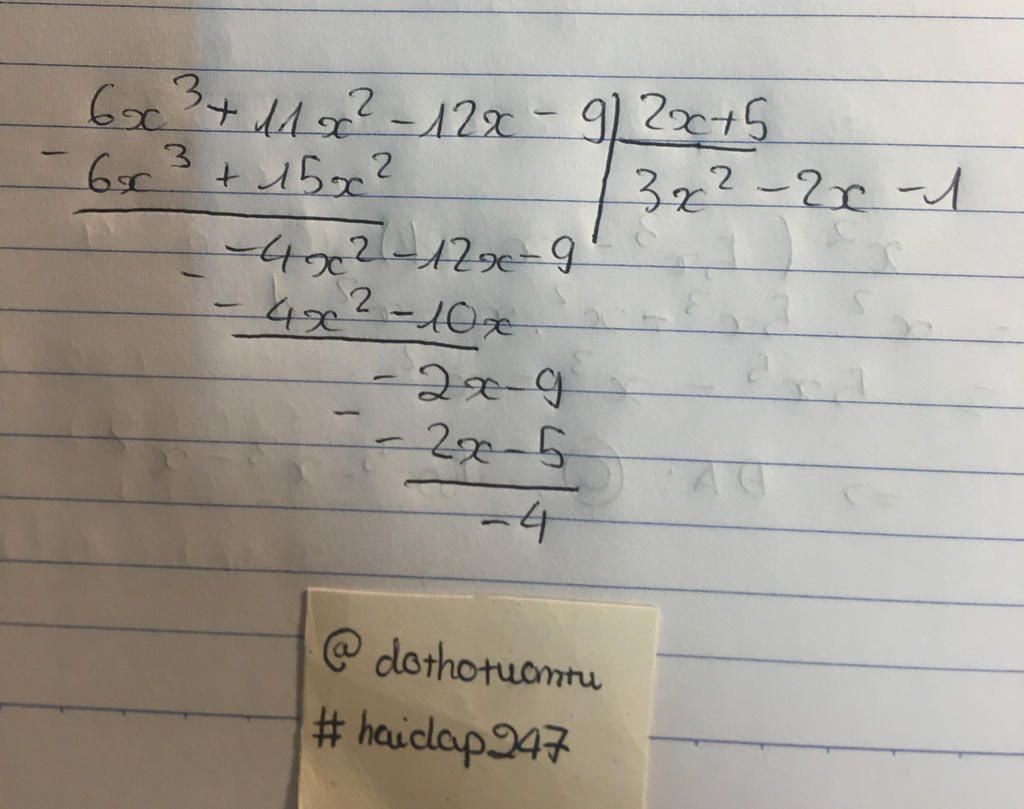 6x³ + 11x² - 12x - 9 | 2x+5
- 6x³ + 15x² | 3x² - 2x - 1
-4x² - 12x - 9
- - 4x² - 10x
- 2x - 9
- - 2x - 5
- 4
@ dothotuantu
# haidap247